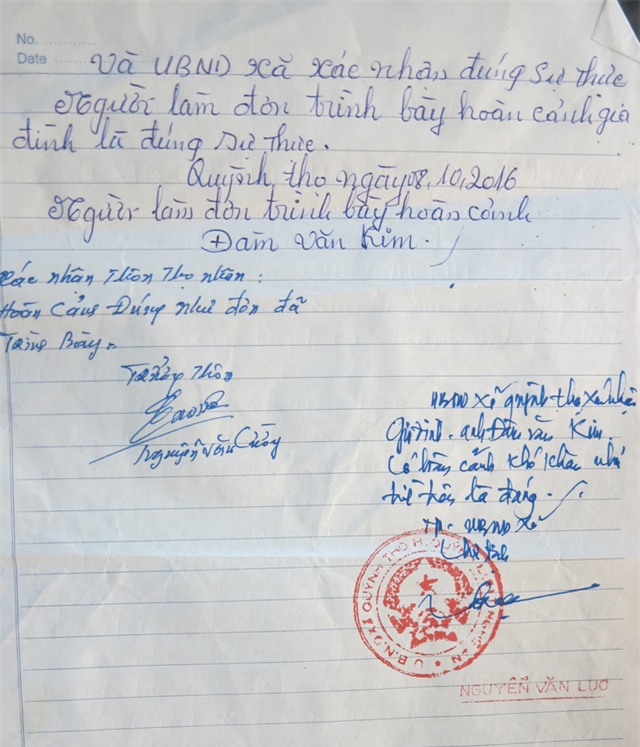 No.
Date
Và UBND xã xác nhận đúng sự thức
Người làm đơn trình bày hoàn cảnh gia
đình là đúng sự thức.
Quỳnh thọ ngày 08.10.2016
Người làm đơn trình bày hoàn cảnh
Đàm Văn Kim.
Xác nhận Thôn Thọ nhân:
Hoàn Cảnh Đúng như đơn đã
Trình Bày.
Trưởng Thôn
Nguyễn Văn Cường
UBND xã quỳnh thọ xác nhận
Gia đình anh Đàm văn Kim
Có hoàn cảnh khó khăn như
trên là đúng.
TM. UBND xã
Chủ tịch
U.B.N.D XÃ QUỲNH THỌ H. QUỲNH NGHỆ AN
NGUYỄN VĂN LỤC